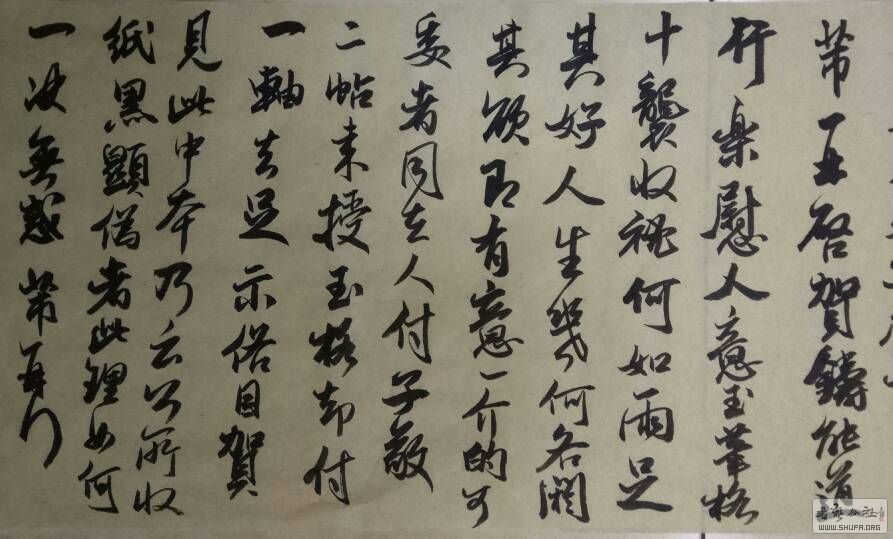 芾再啓賀鑄能道
行樂慰人意玉筆格
十襲收祕何如兩足
其好人生幾何各闕
其欲即有意一介的可
委者同去人付子敬
二帖來授玉格却付
一軸去足示俗目賀
見此中本乃云公所收
紙黑顯偽者此理如何
一決無惑芾再行
WWW.SHUFA.ORG